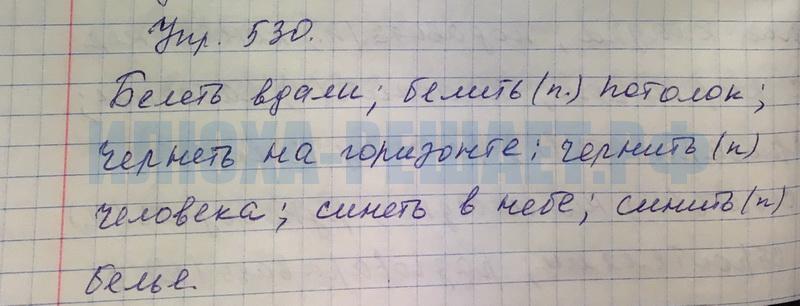 Упр. 530.
Белеть вдали; белить (п.) потолок;
ИЛЮХА-РЕШАЕТ.РФ
чернеть на горизонте; чернить (п)
человека; синеть в небе; синить (п)
белье.